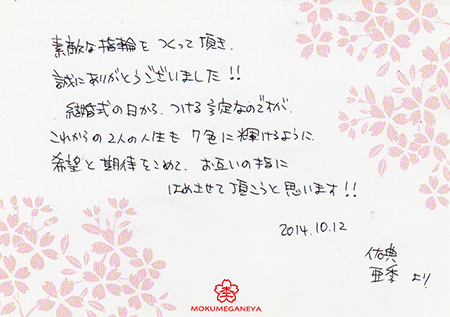 素敵な指輪をつくって頂き、
誠にありがとうございました!!
結婚式の日から、つける予定なのですが、
これからの2人の人生も7色に輝けるように、
希望と期待をこめて、お互いの指に
はめさせて頂こうと思います!!
2014.10.12
佑典
亜季 より
MOKUMEGANEYA